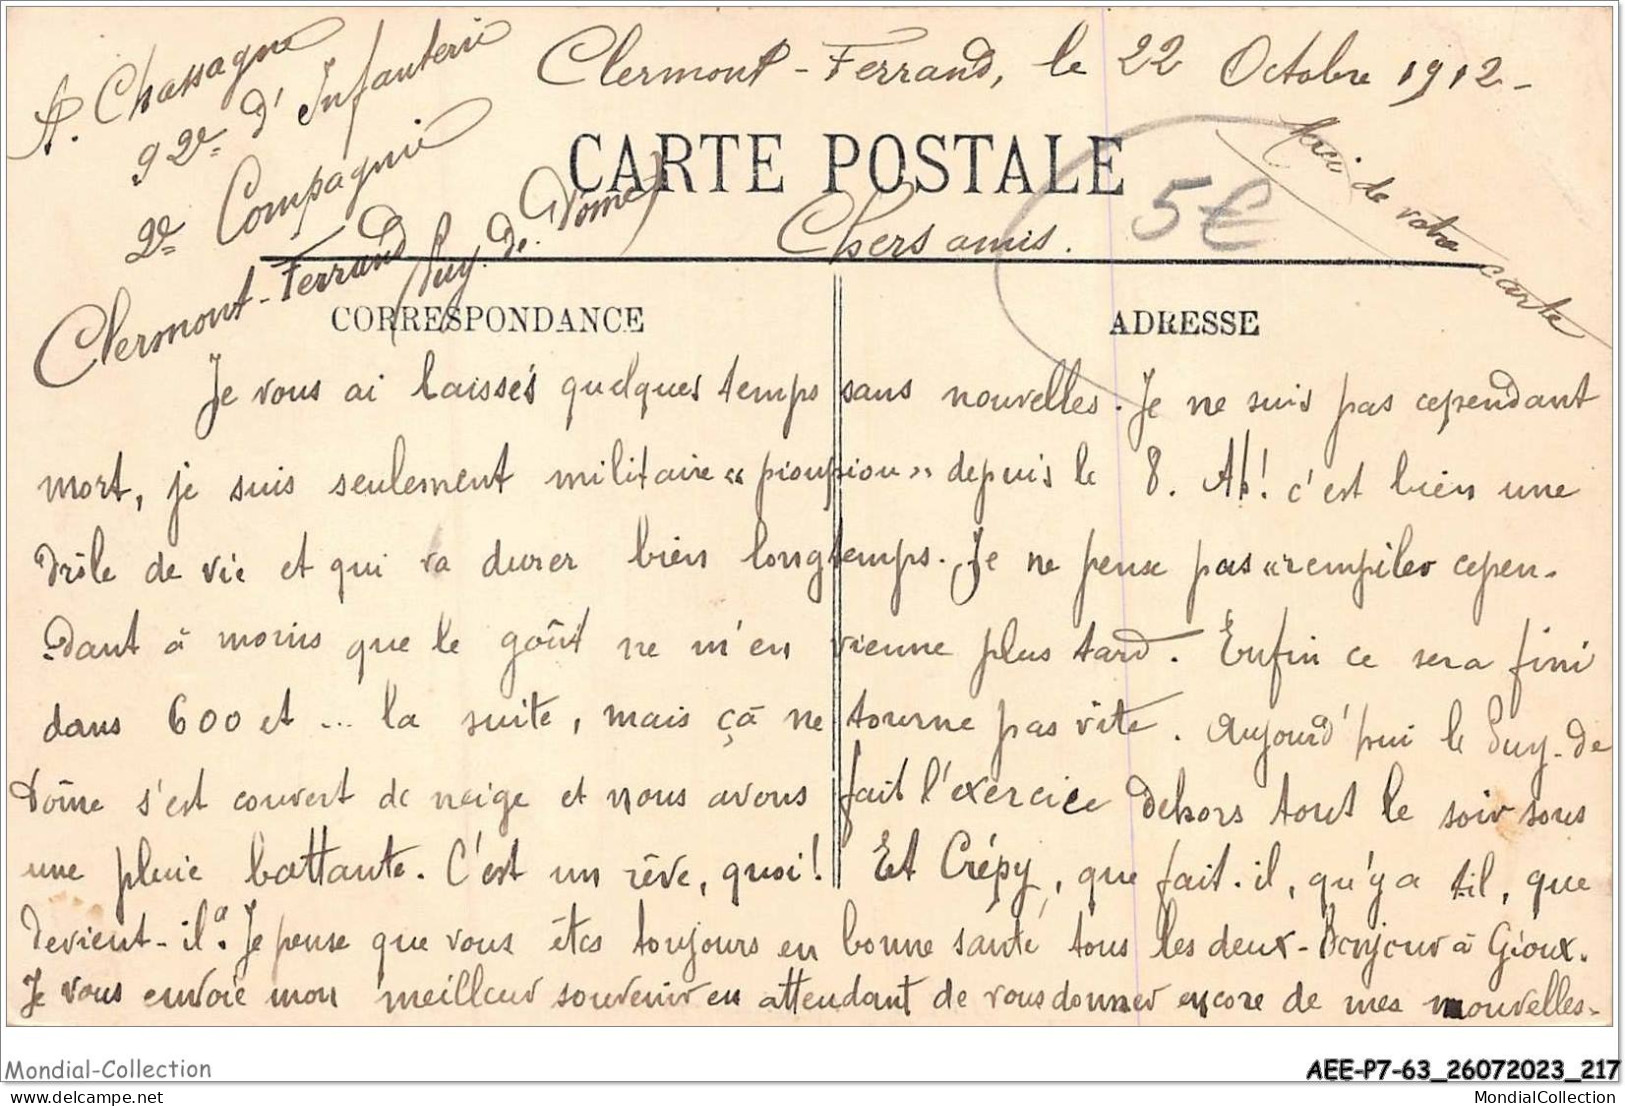 A. Chassagne
92e d'Infanterie
2e Compagnie
Clermont-Ferrand (Puy-de-Dôme)
Clermont-Ferrand, le 22 Octobre 1912-
CARTE POSTALE
5€
Merci de votre carte
Chers amis.
CORRESPONDANCE
ADRESSE
Je vous ai laissés quelques temps sans nouvelles. Je ne suis pas cependant
mort, je suis seulement militaire "pioupiou" depuis le 8. Ah! c'est bien une
drôle de vie et qui va durer bien longtemps. Je ne peux pas "rempiler cepen-
dant à moins que le goût ne m'en vienne plus tard. Enfin ce sera fini
dans 600 et ... la suite, mais çà ne tourne pas vite. Aujourd'hui le Puy-de
Dôme s'est couvert de neige et nous avons fait l'exercice dehors tout le soir sous
une pluie battante. C'est un rêve, quoi! Et Crépy, que fait-il, qu'y a til, que
devient-il? Je pense que vous êtes toujours en bonne santé tous les deux- Bonjour à Gioux.
Je vous envoie mon meilleur souvenir en attendant de vous donner encore de mes nouvelles-
Mondial-Collection
AEE-P7-63_26072023_217
delcampe.net
MondialCollection